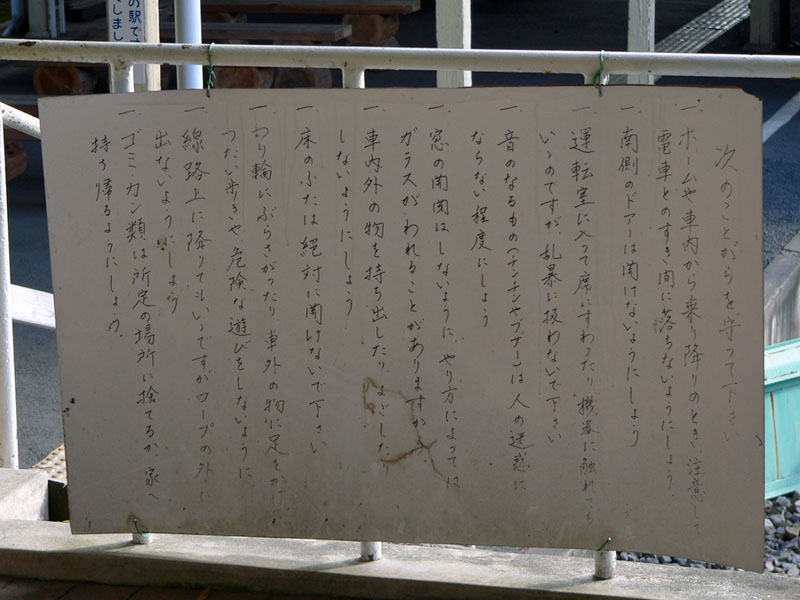 次のことがらを守って下さい
一、ホームや車内から乗り降りのとき、注意して
電車とのすき間に落ちないようにしよう
一、南側のドアーは開けないようにしよう
一、運転室に入って席にすわったり機器に触れても
いいのですが乱暴に扱わないで下さい
一、音のなるもの(チンチンやブザー)は人の迷惑に
ならない程度にしよう
一、窓の開関はしないように、やり方によっては
ガラスがわれることがありますから
一、車内外の物を持ち出したり、よごしたり
しないようにしよう
一、床のふたは絶対に開けないで下さい
一、わり輪にぶらさがったり、車外の物に足をかけて
つたい歩きや危険な遊びをしないように
一、線路上に降りてもいいですがロープの外に
出ないようにしよう
一、ゴミ・カン類は所定の場所に捨てるか、家へ
持ち帰るようにしよう。
の駅で
しまし